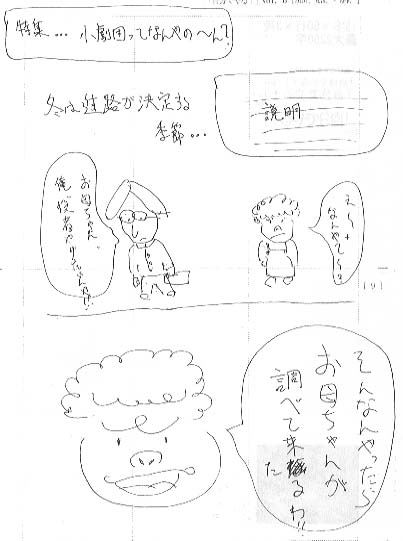 特集... 小劇団ってなんやの〜ん?
冬は進路が決定する
季節...
説明
お母ちゃん、
俺、役者やりたいんや!!
え〜っ
なんやてぇ
そんなんやったら
お母ちゃんが
調べて来るわ!!
た